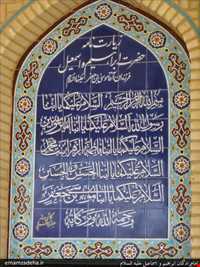 زیارت نامه
حضرت ابراهیم و اسمعیل
بسم الله الرحمن الرحیم السلام علیکما یا ابنا
رسول الله السلام علیکما یا ابنا
السلام علیکما یا ابنا فاطمة الزهراء
السلام علیکما یا ابنا الحسن و الحسین
السلام علیکما یا ابنا موسی بن جعفر
و رحمة الله و برکاته
emamzadeha.ir
امامزادگان ابراهیم و اسماعیل علیه السلام